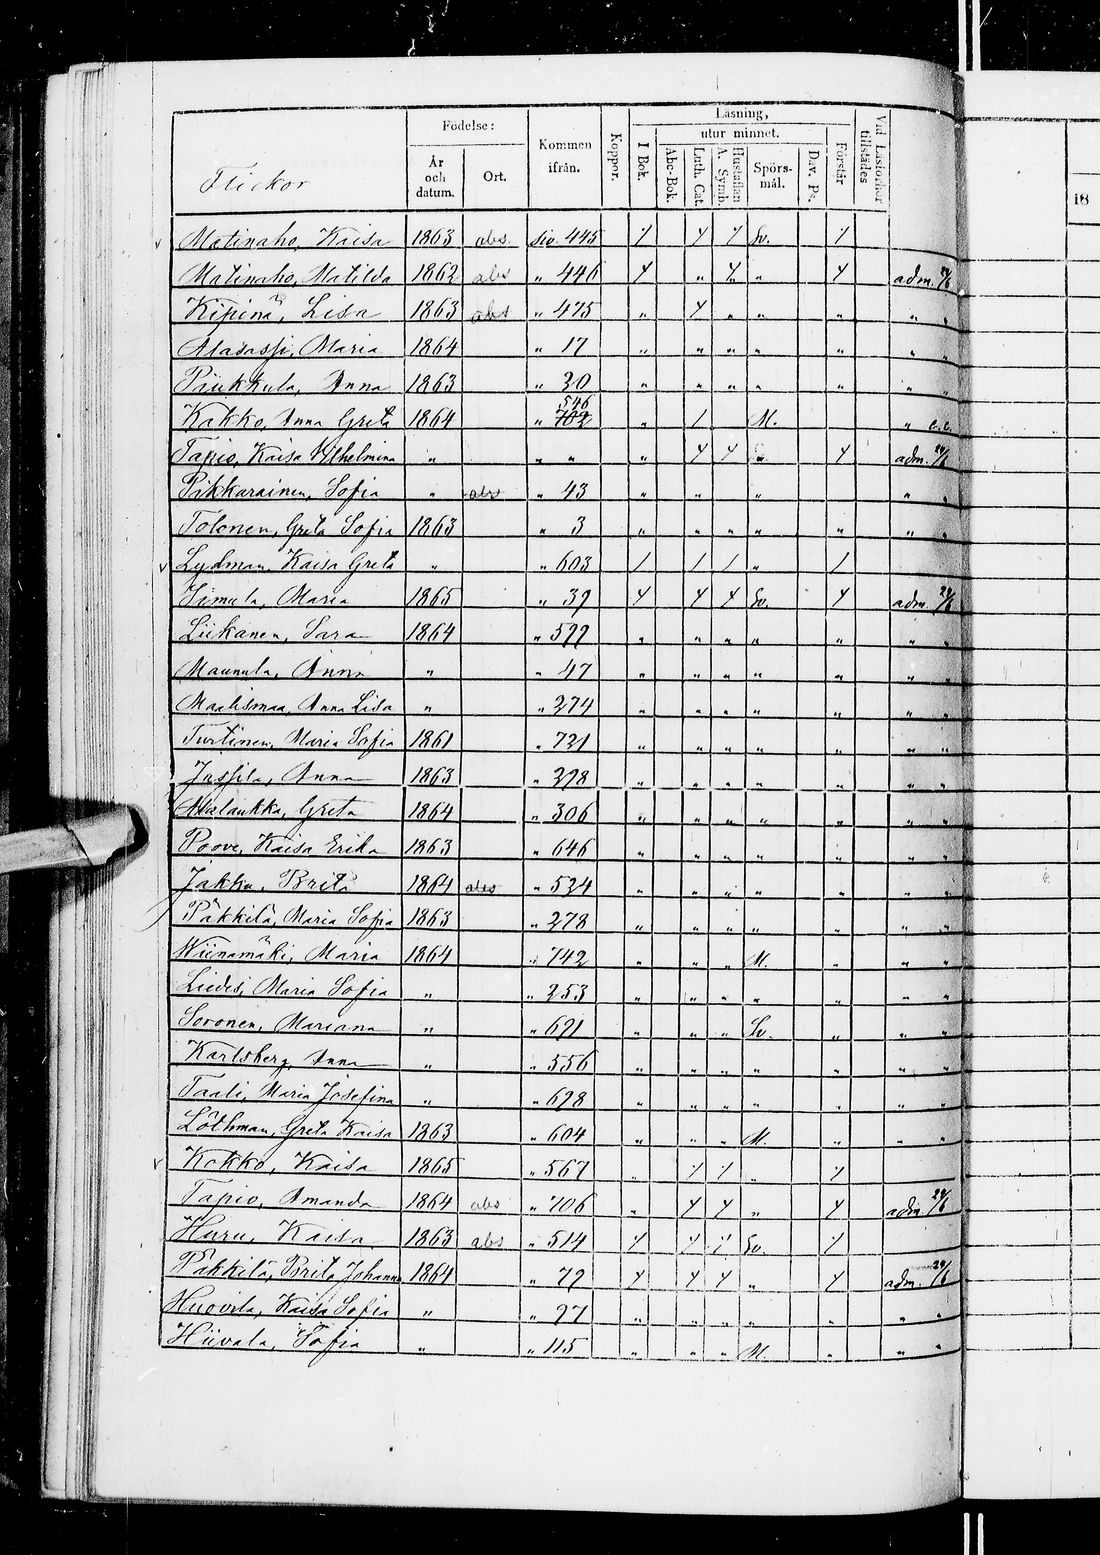 Flickor Födelse: År och datum. Ort. Kommen ifrån. Koppor. Läsning, utur minnet. I Bok. Abc-Bok. Luth. Cat. Hustaflan A. Symb. Spörs-mål. Dav. Ps. Förstår Vid Läsförhör tillstädes 18
v Matinaho, Kaisa 1863 abs. sid. 445 Sv.
Matinaho, Matilda 1862 abs " 446 " " adm. 24/6
Kipinä, Lisa 1863 abs " 475 " " " " " "
Alasassi, Maria 1864 " 17 " " " " " " "
Piukkula, Anna 1863 " 30 " " " " " " "
Kokko, Anna Greta 1864 " 702 546 " 1 M. "
Tapio, Kaisa Wilhelmina " " " " adm. 24/6
Pikkarainen, Sofia " abs " 43 " " " " "
Tolonen, Greta Sofia 1863 " 3 " " " " " " "
v Lydman, Kaisa Greta " " 603 1 1 1 " 1
Simula, Maria 1865 " 39 Sv. adm. 24/6
Liikanen, Sara 1864 " 599 " " " " " " "
Maunula, Anna " " 47 " " " " " " "
Maalismaa, Anna Lisa " " 274 " " " " " " "
Turtinen, Maria Sofia 1861 " 721 " " " " " " "
Jussila, Anna 1863 " 398 " " " " " " "
Alalaukka, Greta 1864 " 306 " " " " " " "
Poove, Kaisa Erika 1863 " 646 " " " " " " "
Jakku, Brita 1864 abs " 534 " " " " " " "
Päkkilä, Maria Sofia 1863 " 278 " " " " " " "
Wiinamäki, Maria 1864 " 742 " " " M. " " "
Liedes, Maria Sofia " " 253 " " " " " " "
Soronen, Mariana " " 691 " " " Sv. " " "
Karlsberg, Anna " " 556 " " " " " " "
Taali, Maria Josefina " " 698 " " " " " " "
Löthman, Greta Kaisa 1863 " 604 " " " M. " " "
v Kokko, Kaisa 1865 " 567 " "
Tapio, Amanda 1864 abs " 706 " " adm 24/6
Huru, Kaisa 1863 abs " 514 Sv.
Päkkilä, Brita Johanna 1864 " 79 " adm. 24/6
Huovila, Kaisa Sofia " " 97 " " " " " " "
Hiivala, Sofia " " 115 " " " M " " "